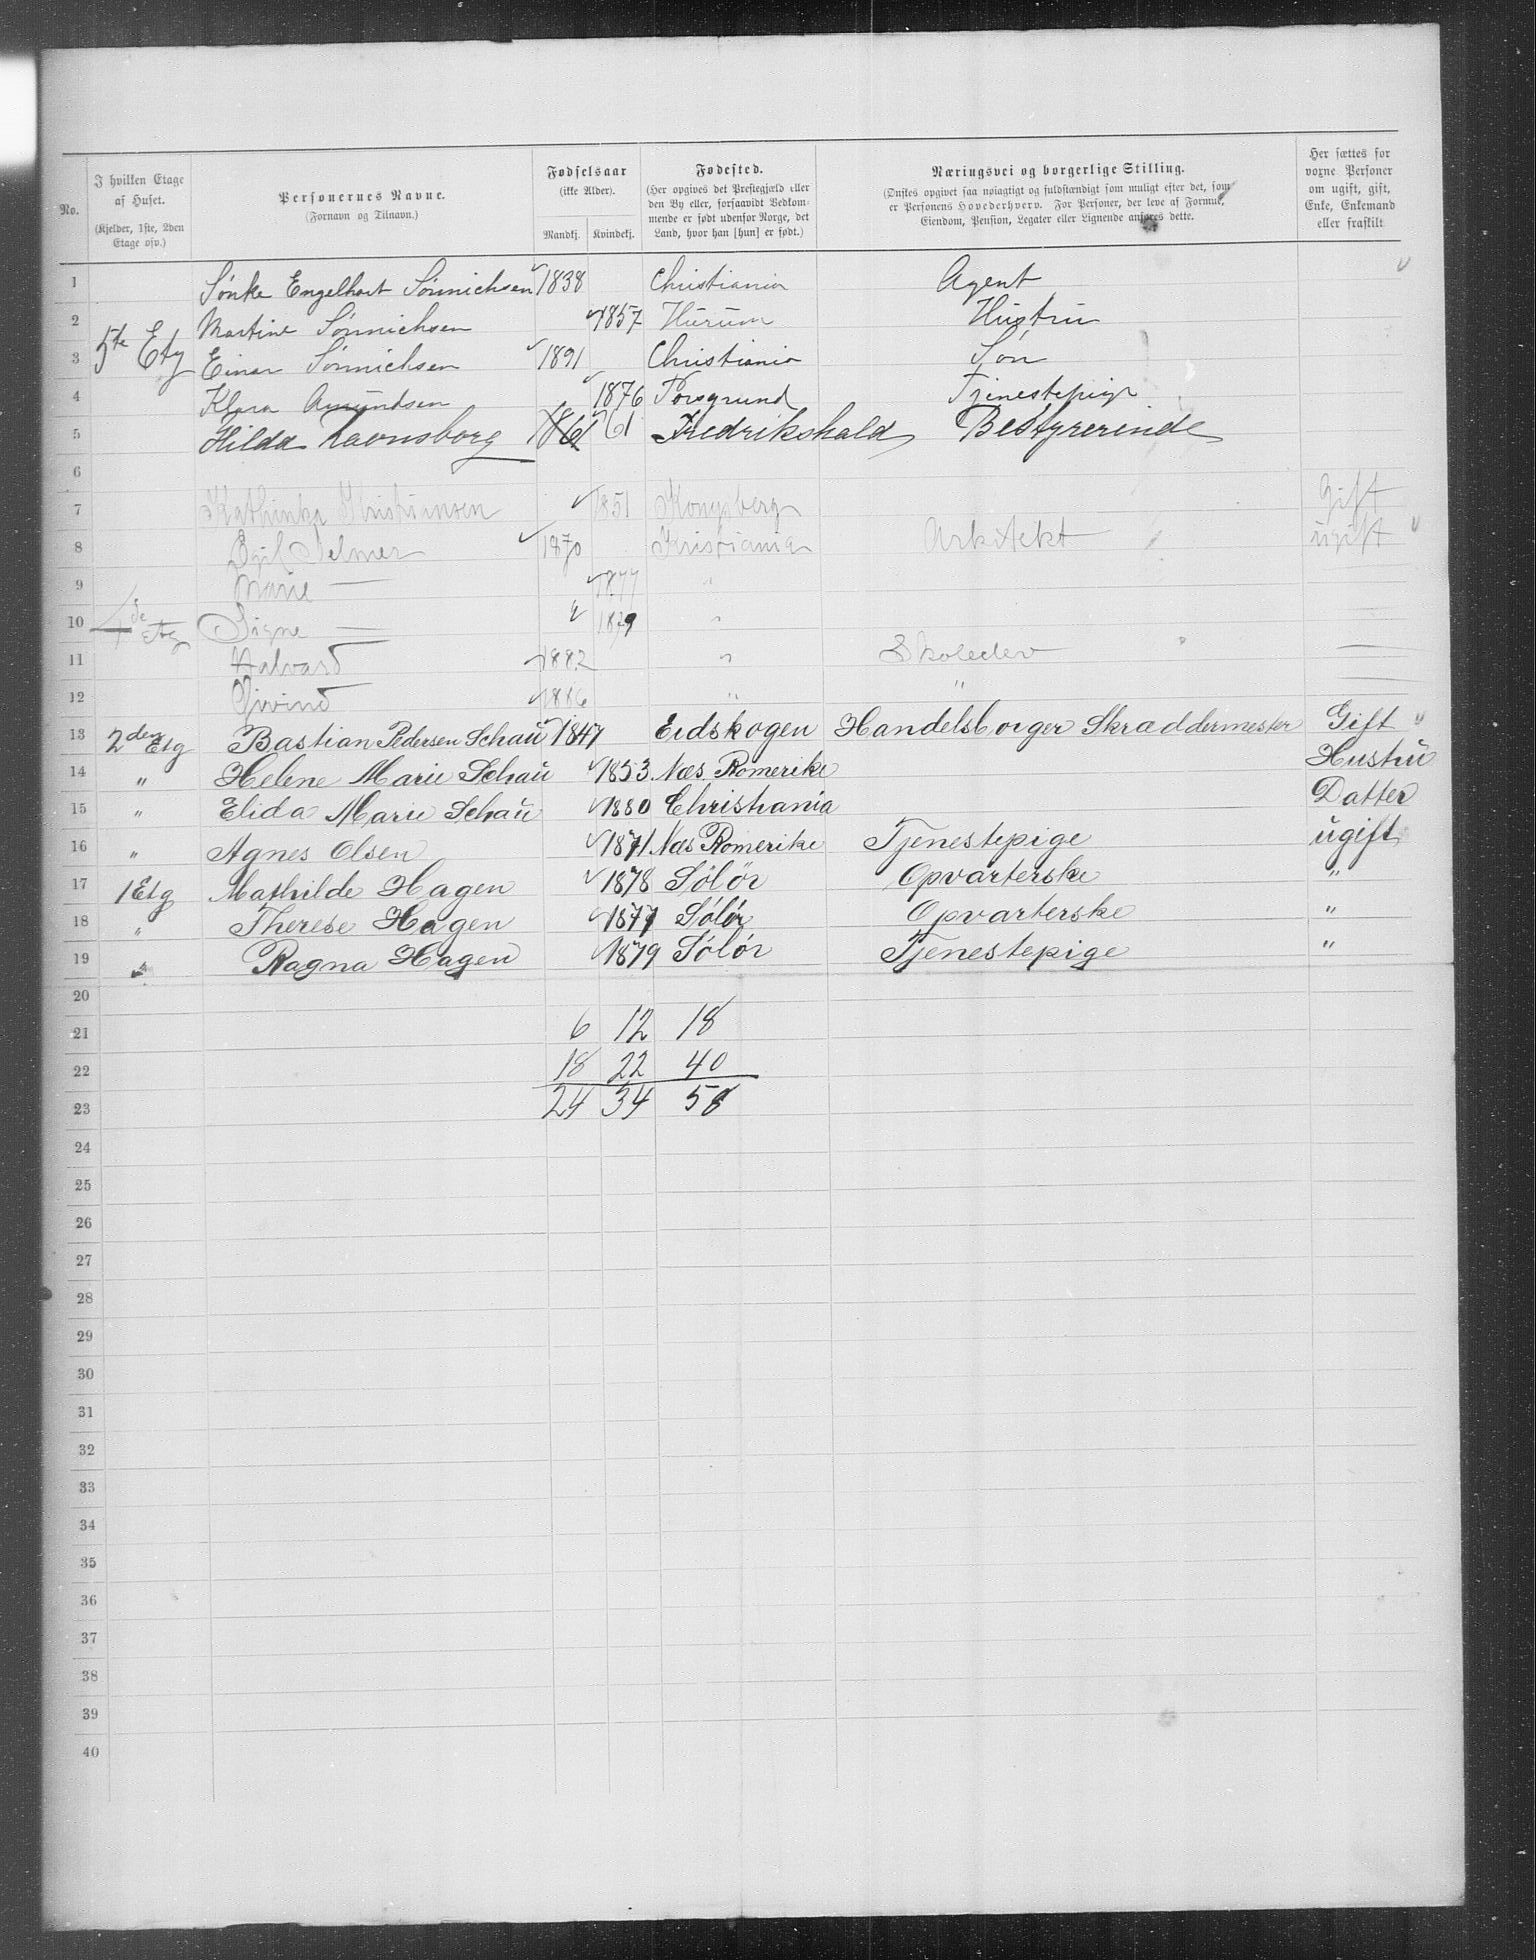 No.
I hvilken Etage af Huset.
(Kjelder, 1ste, 2den Etage osv.)
Personernes Navne.
(Fornavn og Tilnavn.)
Fødselsaar
(ikke Alder).
Mandkj. Kvindekj.
Fødested.
(Her opgives det Prestegjæld eller den By eller, forsaavidt Vedkommende er født udenfor Norge, det Land, hvor han [hun] er født.)
Næringsvei og borgerlige Stilling.
(Ønskes opgivet saa nøiagtigt og fuldstændigt som muligt efter det, som er Personens Hovederhverv. For Personer, der leve af Formue, Eiendom, Pension, Legater eller Lignende anføres dette.)
Her sættes for voxne Personer om ugift, gift, Enke, Enkemand eller fraskilt
1 Sönke Engelhart Sönnichsen 1838 Christiania Agent
2 5te Etg Martine Sönnichsen 1857 Hurum Hustru
3 Einar Sönnichsen 1891 Christiania Søn
4 Klara Amundsen 1876 Porsgrund Tjenestepige
5 Hilda Ravnsborg 1861 61 Fredrikshald Bestyrerinde
6
7 Kathinka Kristiansen 1851 Kongsberg Gift
8 Egil Selmer 1870 Kristiania Arkitekt ugift
9 Marie — 1877 "
10 4de Etg Signe — 1879 "
11 Halvard 1882 " Skoleelev —
12 Øivind 1886 " " —
13 2den Etg Bastian Pedersen Schau 1847 Eidskogen Handelsborger Skræddermester Gift
14 " Helene Marie Schau 1853 Næs Romerike Hustru
15 " Elida Marie Schau 1880 Christiania Datter
16 " Agnes Olsen 1871 Næs Romerike Tjenestepige ugift
17 1 Etg Mathilde Hagen 1878 Sölör Opvarterske "
18 " Therese Hagen 1877 Sölör Opvarterske "
19 " Ragna Hagen 1879 Sölör Tjenestepige "
20
21 6 12 18
22 18 22 40
23 24 34 58
24
25
26
27
28
29
30
31
32
33
34
35
36
37
38
39
40